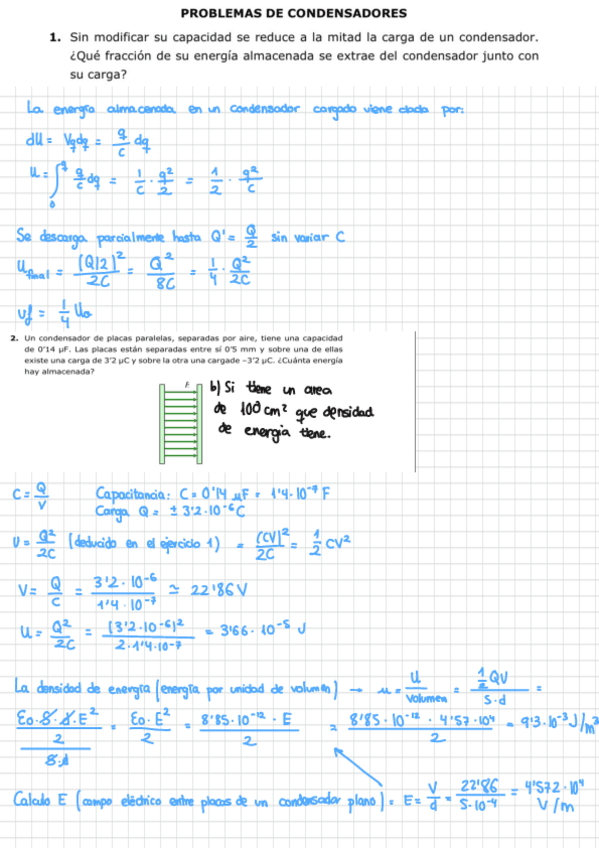 PROBLEMAS DE CONDENSADORES
1. Sin modificar su capacidad se reduce a la mitad la carga de un condensador.
¿Qué fracción de su energía almacenada se extrae del condensador junto con
su carga?
La energía almacenada en un condensador cargado viene dada por:
dU = Vq dq = q/c dq
U = ∫₀^q q/c dq = 1/c · q²/2 = 1/2 · q²/c
Se descarga parcialmente hasta Q' = Q/2 sin variar C
U final = (Q/2)²/2C = Q²/8C = 1/4 · Q²/2C
Uf = 1/4 U₀
2. Un condensador de placas paralelas, separadas por aire, tiene una capacidad
de 0'14 µF. Las placas están separadas entre sí 0'5 mm y sobre una de ellas
existe una carga de 3'2 µC y sobre la otra una cargade −3'2 µC. ¿Cuánta energía
hay almacenada?
b) Si tiene un area
de 100 cm² que densidad
de energia tiene.
C = Q/V Capacitancia: C = 0'14 µF = 1'4·10⁻⁷ F
Carga Q = ± 3'2·10⁻⁶ C
U = Q²/2C (deducido en el ejercicio 1) = (CV)²/2C = 1/2 CV²
V = Q/C = 3'2·10⁻⁶/1'4·10⁻⁷ ≃ 22'86 V
U = Q²/2C = (3'2·10⁻⁶)²/2·1'4·10⁻⁷ = 3'66·10⁻⁵ J
La densidad de energía (energía por unidad de volumen) → u = U/Volumen = 1/2 QV/S·d =
(ε₀·S·d·E²/2)/(S·d) = ε₀·E²/2 = 8'85·10⁻¹²·E/2 = 8'85·10⁻¹²·4'57·10⁴/2 = 9'3·10⁻³ J/m³
Calculo E (campo eléctrico entre placas de un condensador plano) = E = V/d = 22'86/5·10⁻⁴ = 4'572·10⁴ V/m